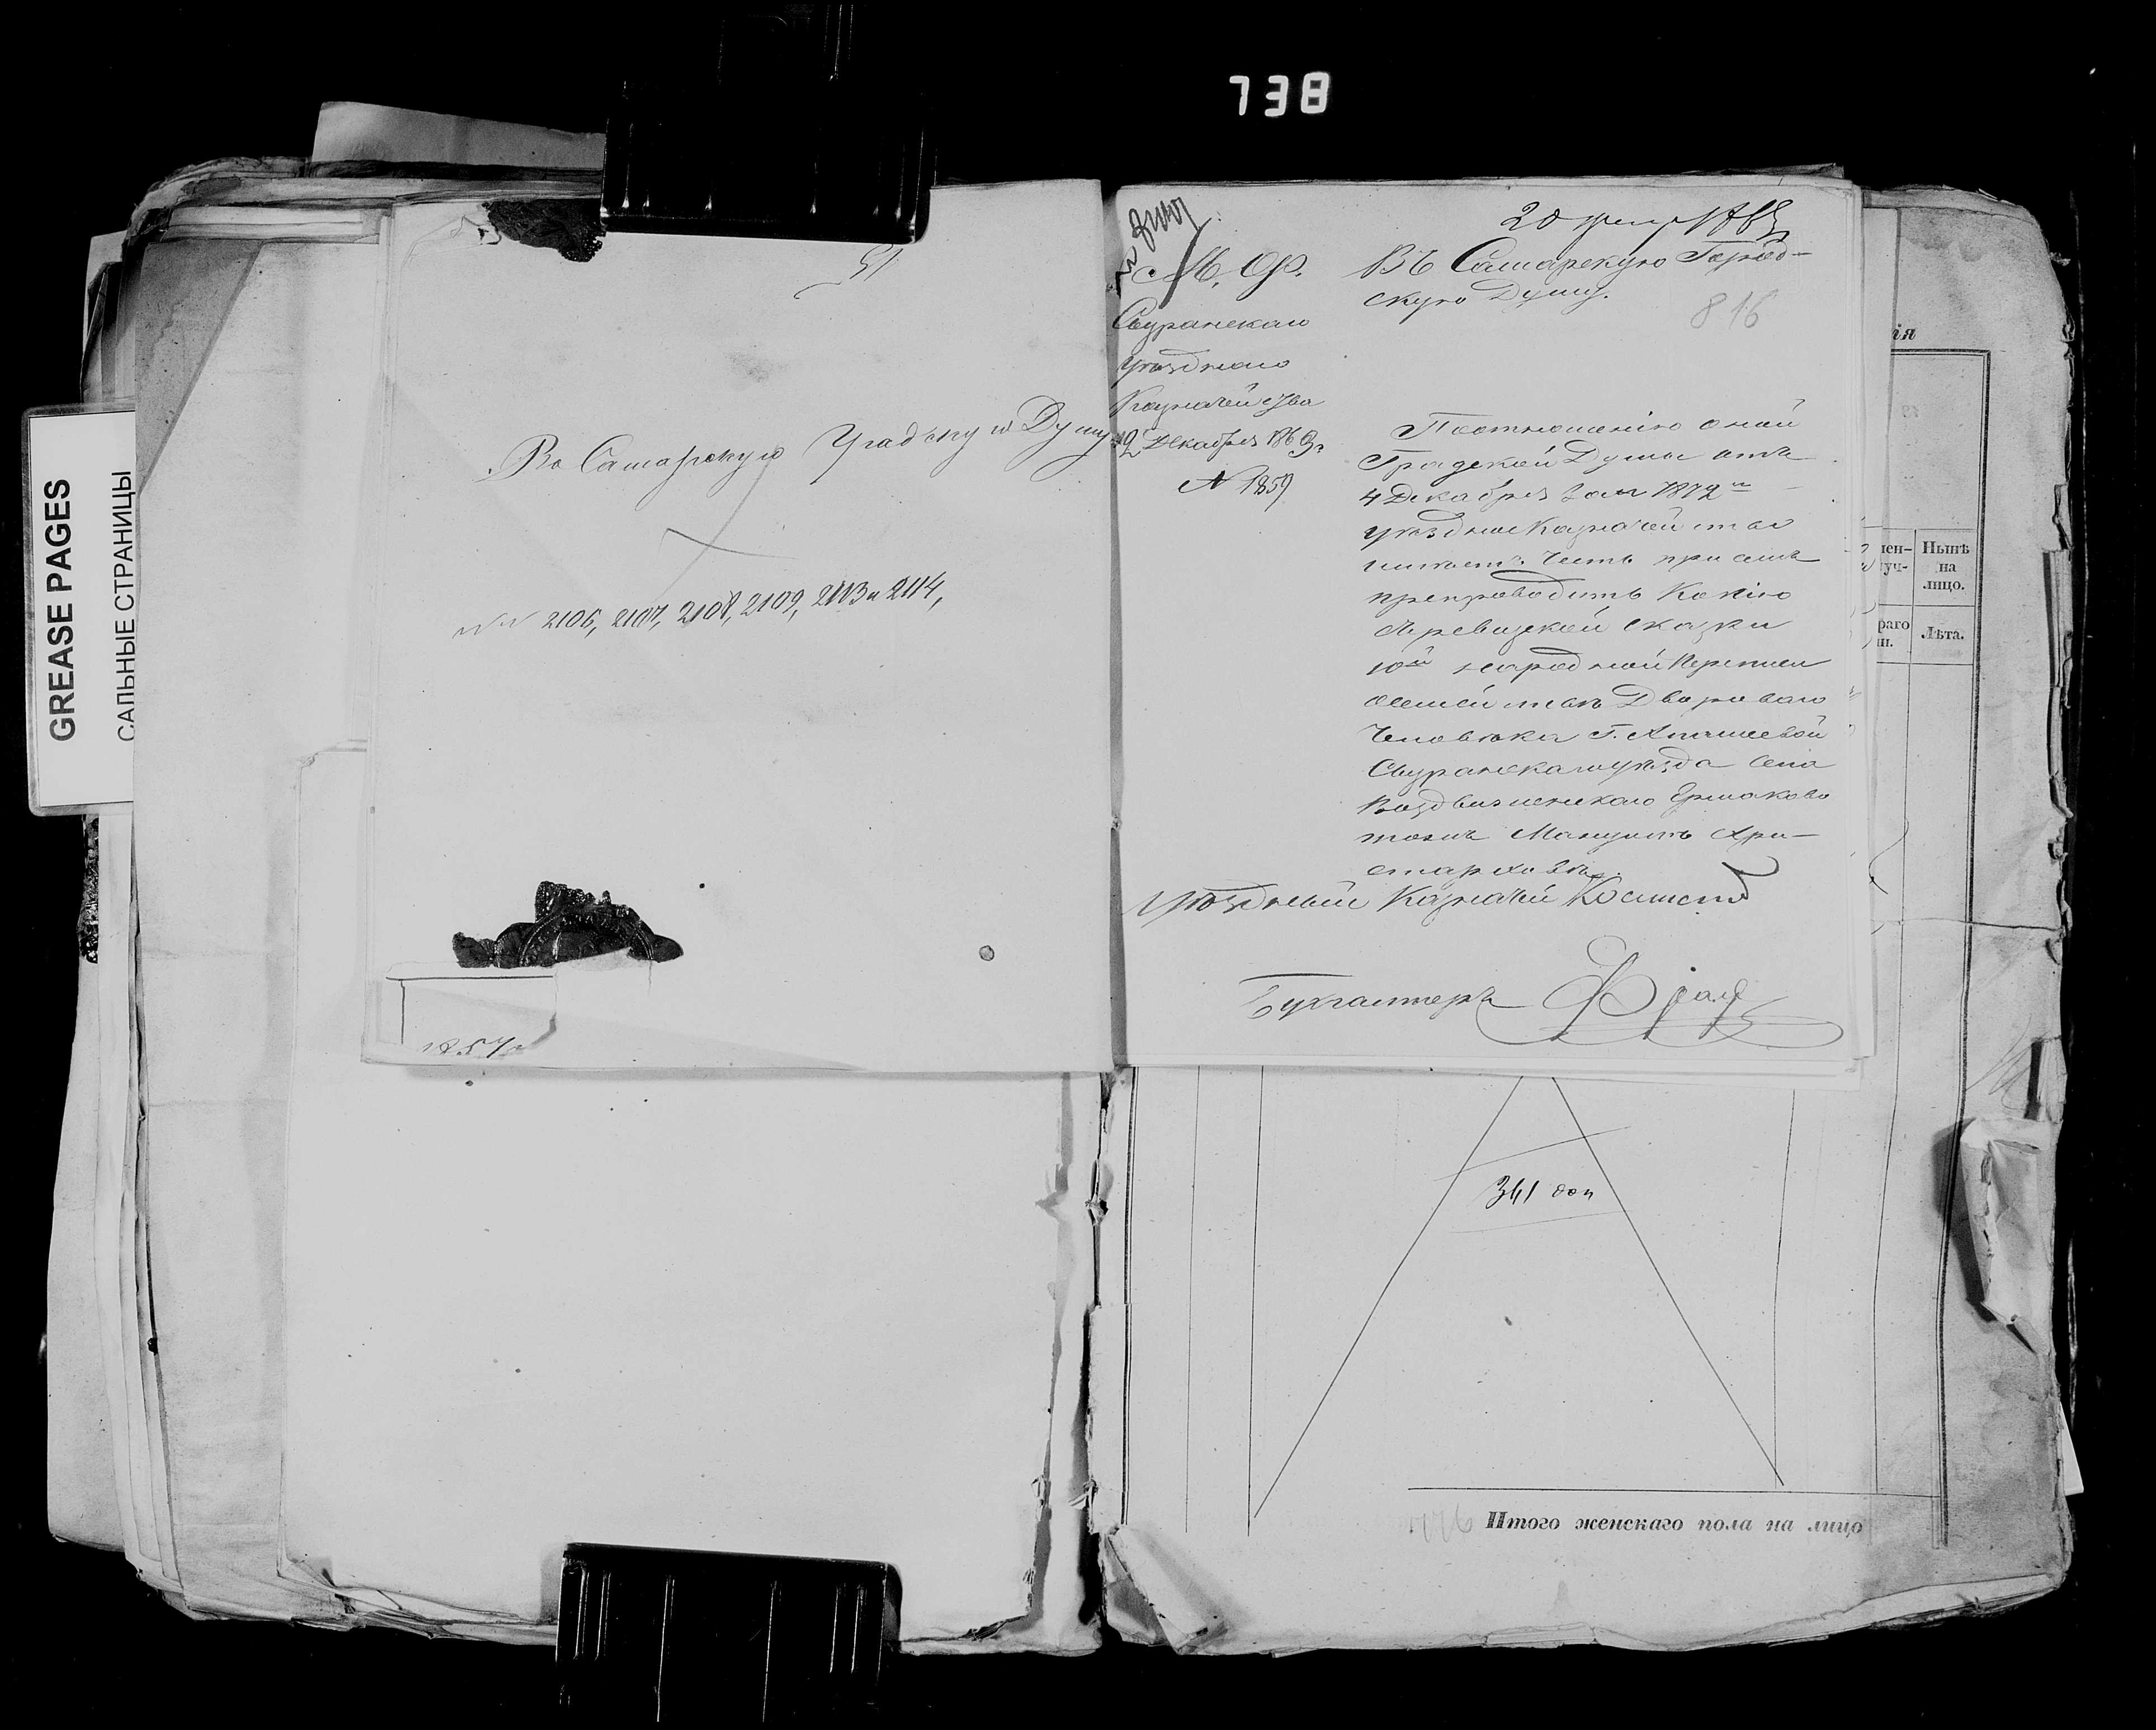 738
GREASE PAGES
САЛЬНЫЕ СТРАНИЦЫ
51
Въ Самарскую Градскую Думу
№№ 2106, 2107, 2108, 2109, 2113 и 2114,
1857
20
М. Ф.
Сызранскаго
Уѣзднаго
Казначейства
12 Декабря 1863 г.
№ 1859
Въ Самарскую Город-
скую Думу.
816
По отношенію оной
Градской Думы отъ
4 Декабря за №
уѣздное Казначейство
имѣетъ честь при семъ
препроводить Копію
съ ревизской сказки
10й народной переписи
о семействѣ Двороваго
Человѣка Г.
Сызранскаго уѣзда села
Воздвиженскаго Ермаково
тожъ
Уѣздный Казначей
Бухгалтеръ
ія
мен-
луч-
Нынѣ
на
лицо.
раго
ни.
Лѣта.
341 доп
Итого женскаго пола на лицо